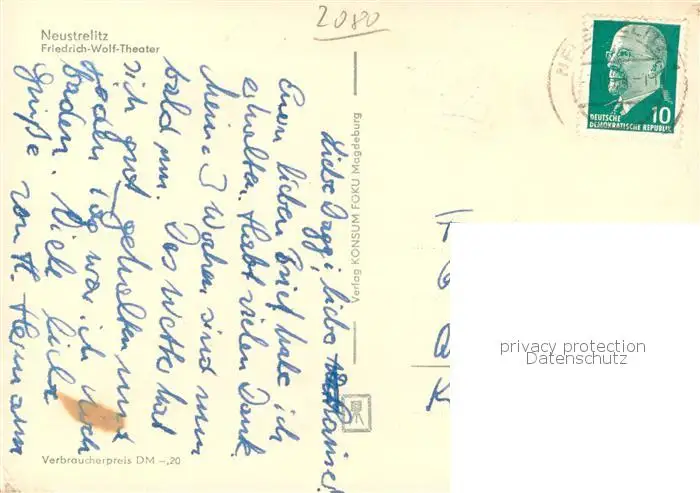 2080
Neustrelitz
Friedrich-Wolf-Theater
Liebe Daggi, liebe
Euren lieben Brief habe ich
erhalten. Habt vielen Dank.
Meine 3 Wochen sind nun
bald um. Das Wetter hat
sich gut gehalten und
jeden Tag war ich noch
baden. Viele liebe
Grüße von H. Hermann
Verlag KONSUM FOKU Magdeburg
Verbraucherpreis DM -,20
10
DEUTSCHE
DEMOKRATISCHE REPUBLIK
privacy protection
Datenschutz